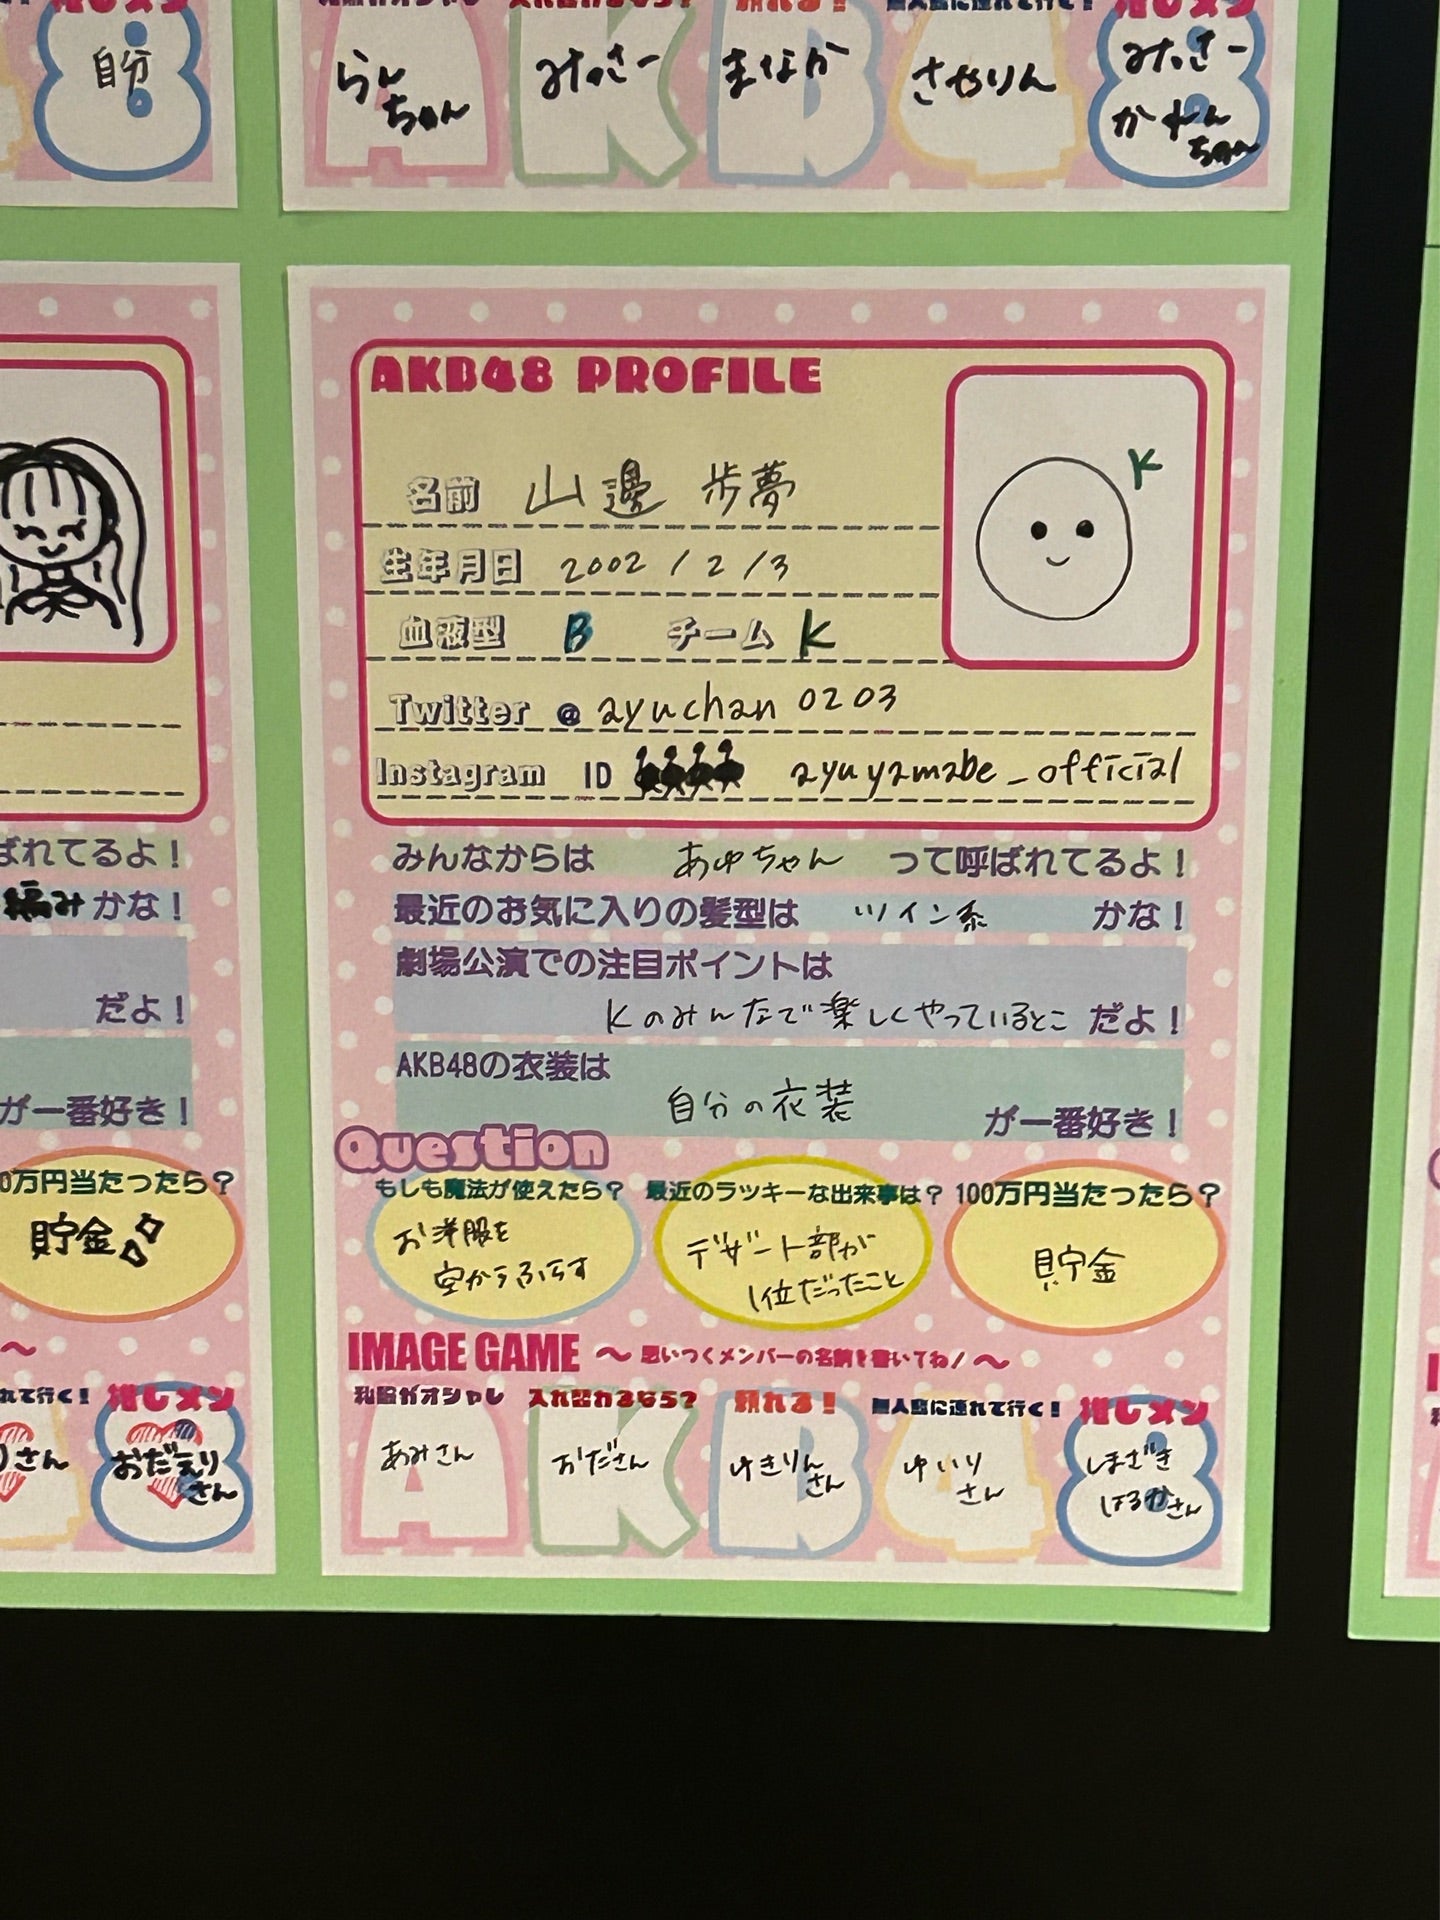 自分
私服がオシャレ 入れ替わるなら? 頼れる! 無人島に連れて行く! 推しメン
らんちゃん
みっさー
まなか
さやりん
みっさー
かれんちゃん
AKB48 PROFILE
名前 山邊 歩夢
生年月日 2002 / 2 / 3
血液型 B チーム K
K
Twitter @ ayuchan 0203
Instagram ID ayuyamabe_official
みんなからは あゆちゃん って呼ばれてるよ!
最近のお気に入りの髪型は ツイン系 かな!
劇場公演での注目ポイントは
Kのみんなで楽しくやっているとこ だよ!
AKB48の衣装は
自分の衣装 が一番好き!
Question
もしも魔法が使えたら? 最近のラッキーな出来事は? 100万円当たったら?
お洋服を
空からふらす
デザート部が
1位だったこと
貯金
IMAGE GAME ～思いつくメンバーの名前を書いてね!～
私服がオシャレ 入れ替わるなら? 頼れる! 無人島に連れて行く! 推しメン
あみさん
おださん
ゆきりん
さん
ゆいり
さん
しまざき
はるかさん
A K B 4 8
ばれてるよ!
編みかな!
だよ!
が一番好き!
0万円当たったら?
貯金
～
れて行く! 推しメン
りさん
おだえり
さん